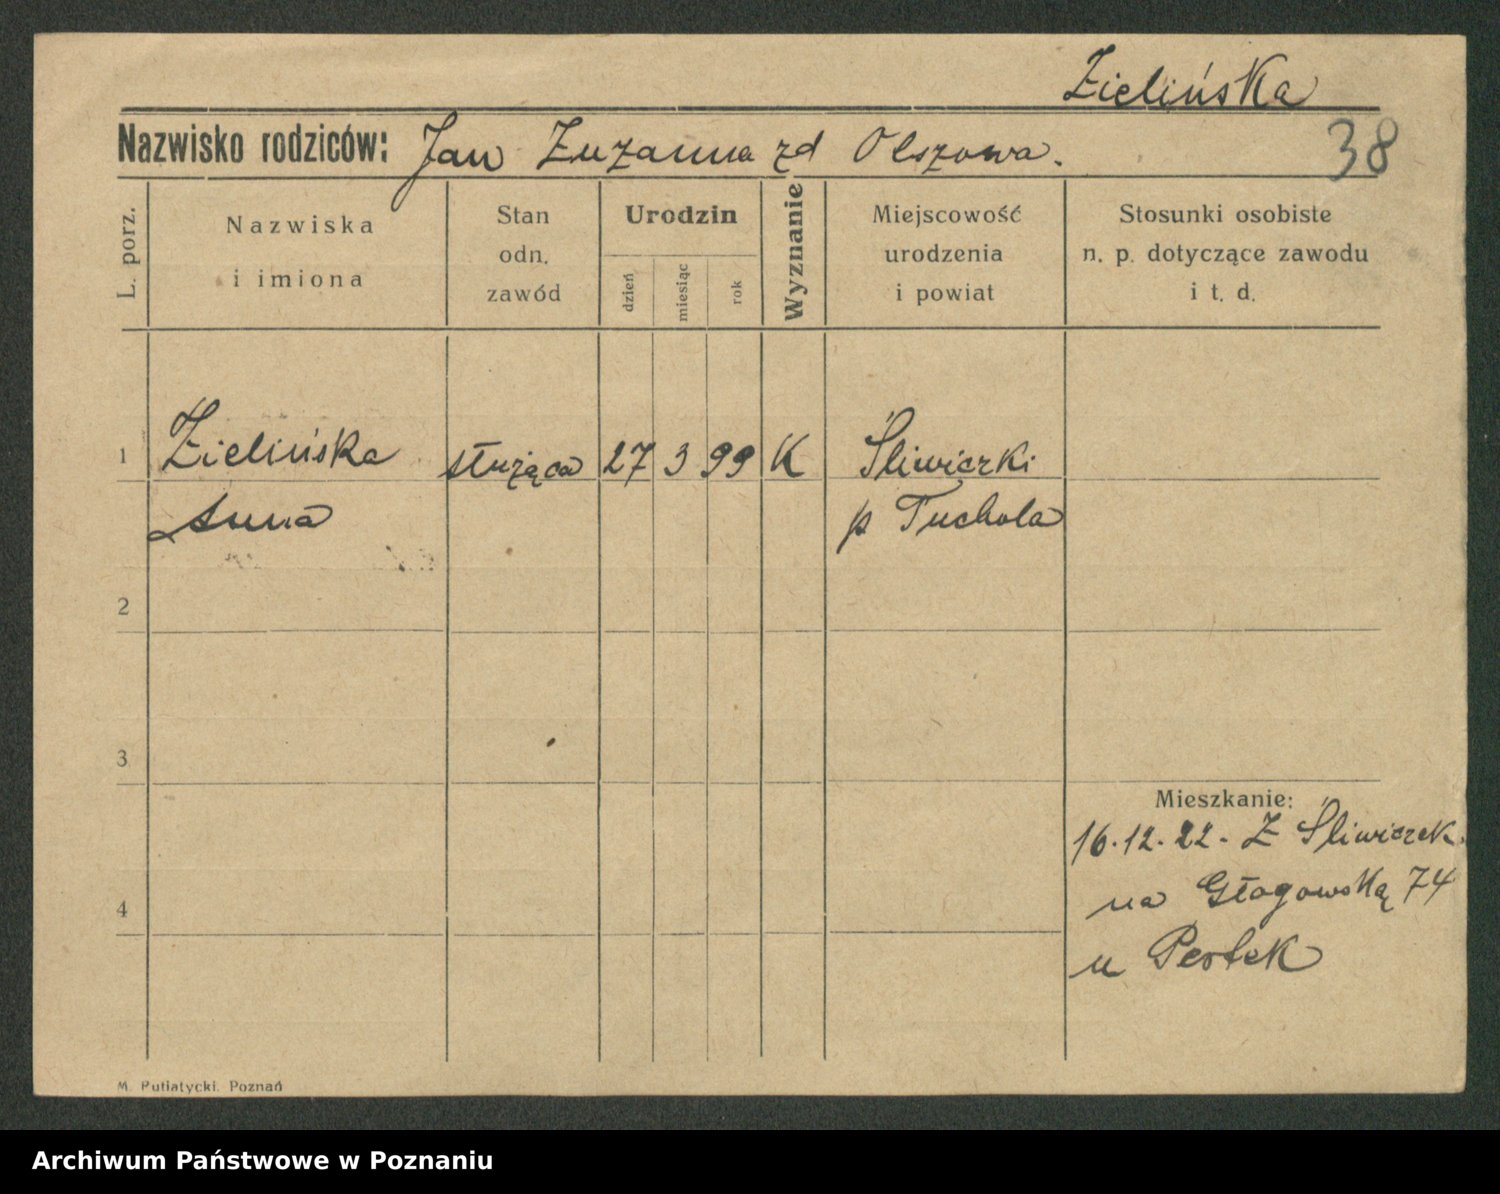 Zielińska
Nazwisko rodziców: Jan Zuzanna zd Olszowa.
38
L. porz.
Nazwiska
i imiona
Stan
odn.
zawód
Urodzin
dzień
miesiąc
rok
Wyznanie
Miejscowość
urodzenia
i powiat
Stosunki osobiste
n. p. dotyczące zawodu
i t. d.
1 Zielińska służąca 27 3 99 K Śliwiczki
Anna p Tuchola
2
3
Mieszkanie:
16.12.22. Z Śliwiczek
na Głogowską 74
4
u Pestek
M. Putiatycki. Poznań
Archiwum Państwowe w Poznaniu